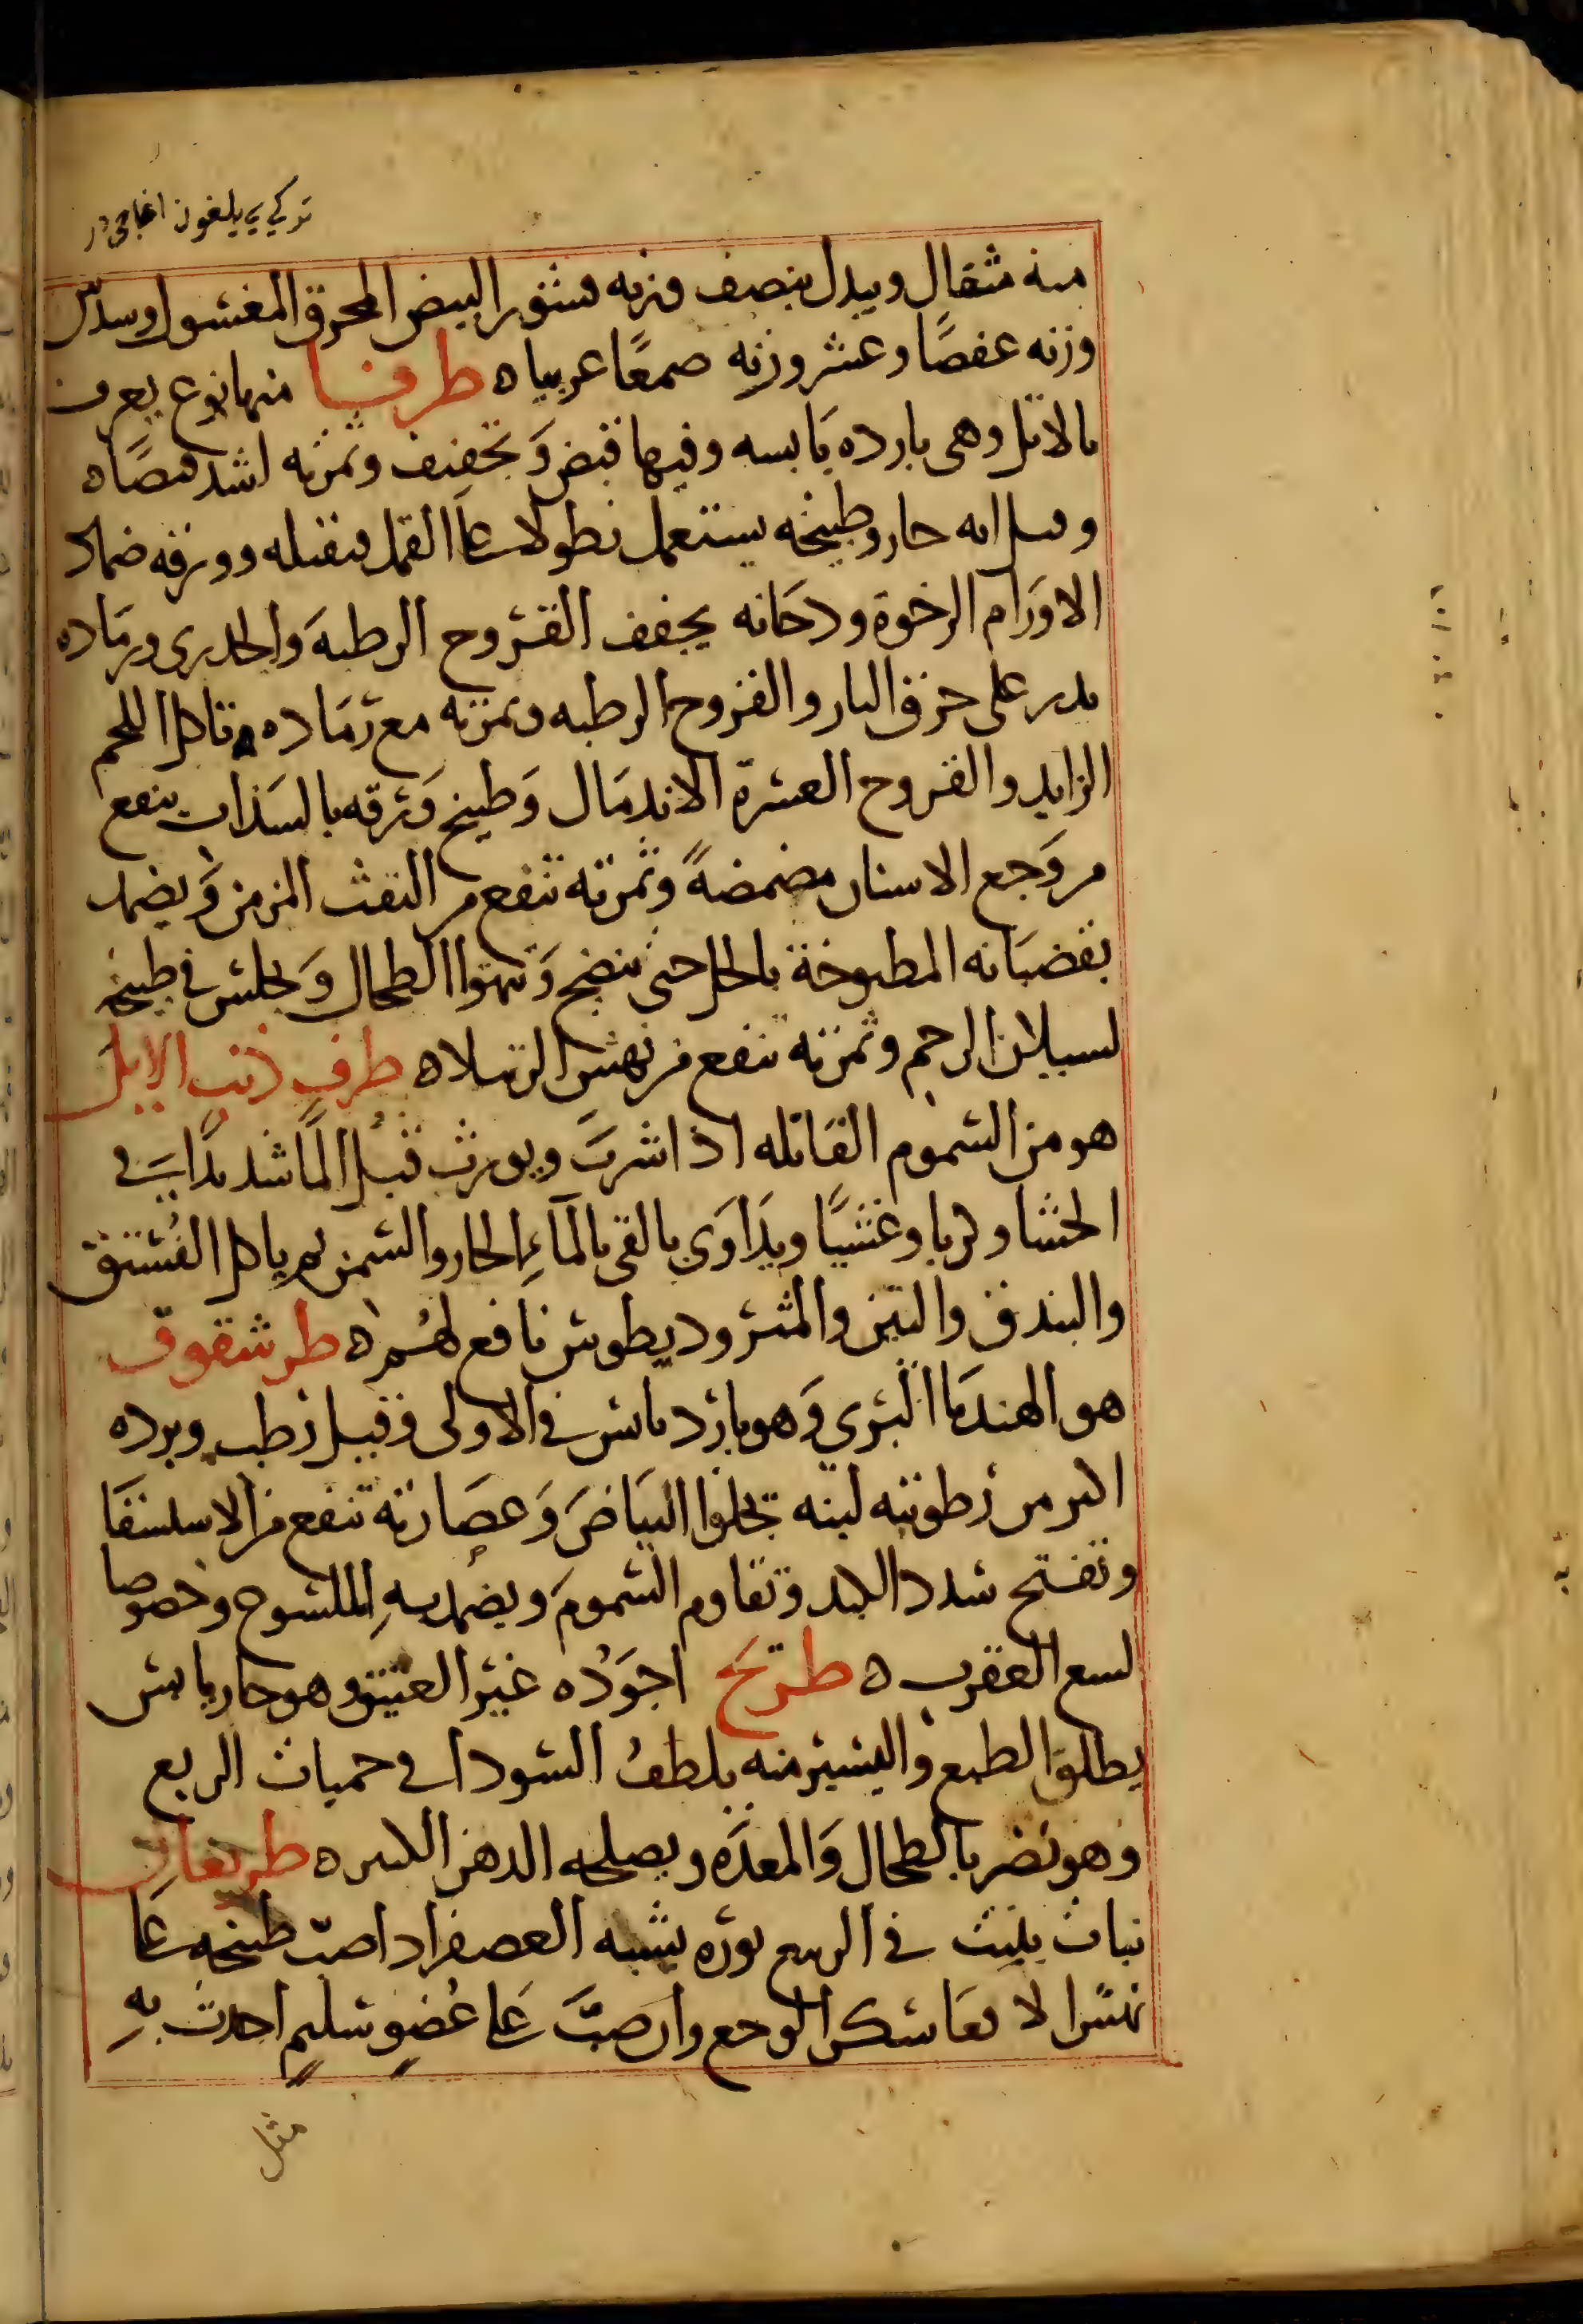 تركي يلغون اغاجي در
منه مثقال ويبدل بنصف وزنه قشور البيض المحرق المغسول وسدس
وزنه عفصًا وعشر وزنه صمغًا عربيا ه طرفا منها نوع يعرف
بالاثل وهى بارده يَابسه وفيها قبض وَتجفيف وثمرته اشد قبضًا ه
وقيل انه حار وطبيخه يستعمل نطولا على القمل فيقتله وورقه ضماد
الاورَام الرخوة ودخَانه يجفف القروح الرطبهَ وَالجدرى ورمَاده
يدر على حرق النار والقروح الرطبه وثمرته مع رمَاده تاكل اللحم
الزايد والقروح العسرة الاندمَال وَطبيخ وَرقه بالسذاب ينفع
من وَجع الاسنان مضمضةً وثمرته تنفع من النفث المزمن وَيضمد
بقضبَانه المطبوخة بالخل حتى ينضج وَتهرا الطحال وَيجلس فى طبيخه
لسيلان الرحم وثمرته تنفع من نهش الرتيلا ه طرف ذنب الايل
هو من السموم القَاتله اذا شربَ ويورث قبل المًا شديدًا فى
الحشا وكربا وغشيًا ويدَاوَى بالقى بالمَاءِ الحار والسمن ثم ياكل الفُستق
والبندق والتين والمثروديطوش نافع لهُم ه طرشقوق
هو الهندبَا البرى وَهو بارد يابس فى الاولى وقيل رطب وبرده
اكثر من رطوبته لبنه تجلوا البيَاضَ وَعصَارته تنفع من الاستسقَا
وتفتح سدد الكبد وتقاوم السمومَ ويضمد بهِ الملسوع وخصوصا
لسع العقرب ه طريَخ اجوَدُه غيرُ العتيق وهو حار يابس
يطلق الطبع واليسير منه يلطفُ السودا فى حميات الربع
وهو يَضر بالطحال وَالمعدَه ويصلحه الدهن الكثير ه طريفان
نباث ينبث فى الربيع نوره يشبه العصفر اذا صبّ طبيخه عَلى
نهش الافعَا سكن الوجع وان صبَّ عَلى عُضوٍ سليمٍ احدث بهِ
مثل